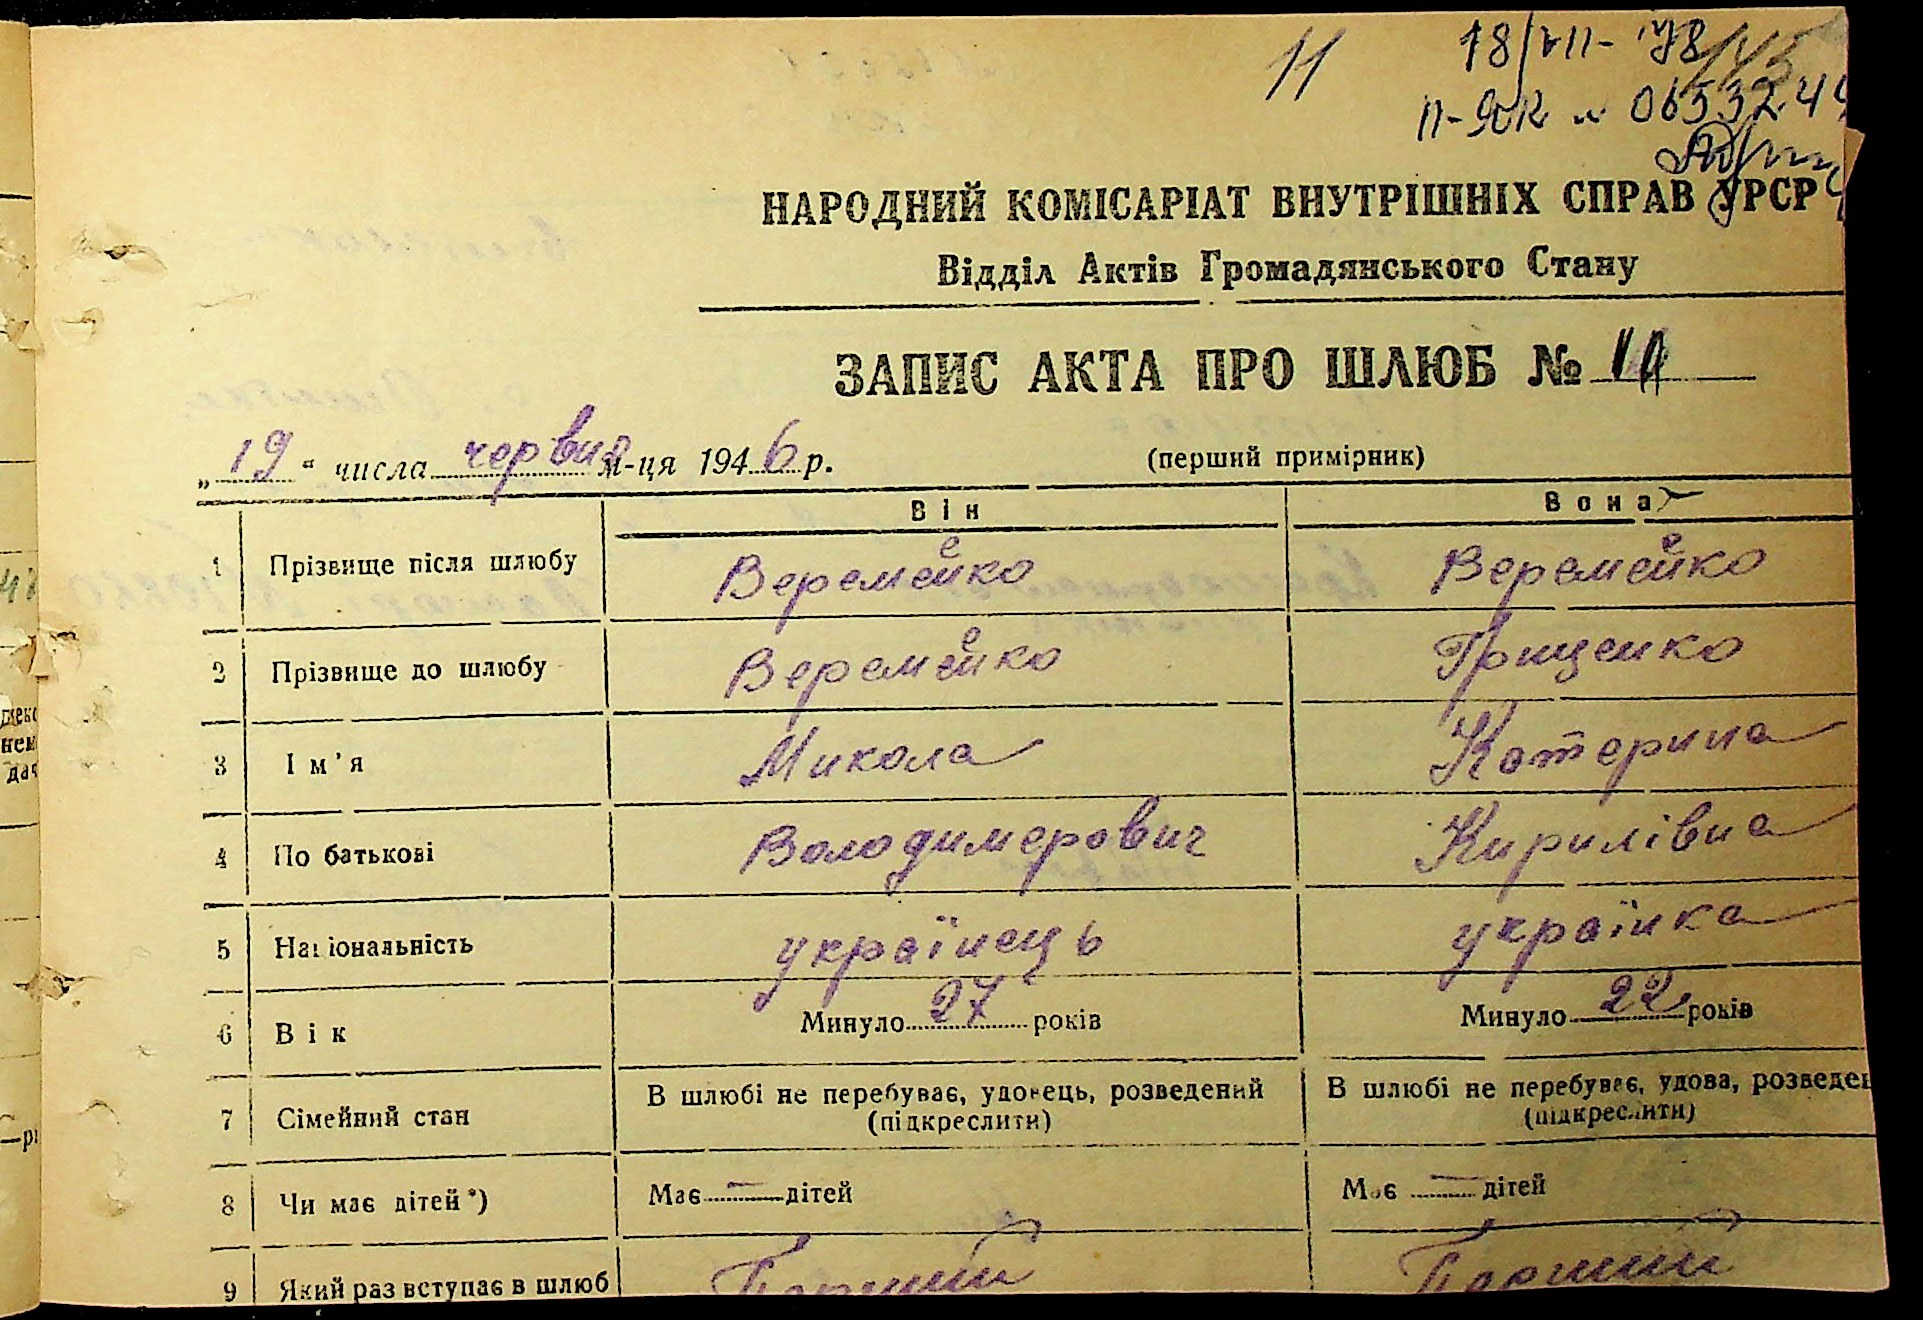 11
18/VII-78
145
II-ЯК № 0653244
НАРОДНИЙ КОМІСАРІАТ ВНУТРІШНІХ СПРАВ УРСР
Відділ Актів Громадянського Стану
ЗАПИС АКТА ПРО ШЛЮБ № 11
„19“ числа червня м-ця 1946 р. (перший примірник)
Він Вона
1 Прізвище після шлюбу Веремейко Веремейко
2 Прізвище до шлюбу Веремейко Грищенко
3 Ім’я Микола Катерина
4 По батькові Володимерович Кирилівна
5 Національність українець українка
6 Вік Минуло 27 років Минуло 22 років
7 Сімейний стан В шлюбі не перебуває, удовець, розведений В шлюбі не перебуває, удова, розведен
(підкреслити) (підкреслити)
8 Чи має дітей *) Має — дітей Має — дітей
9 Який раз вступає в шлюб Перший Перший